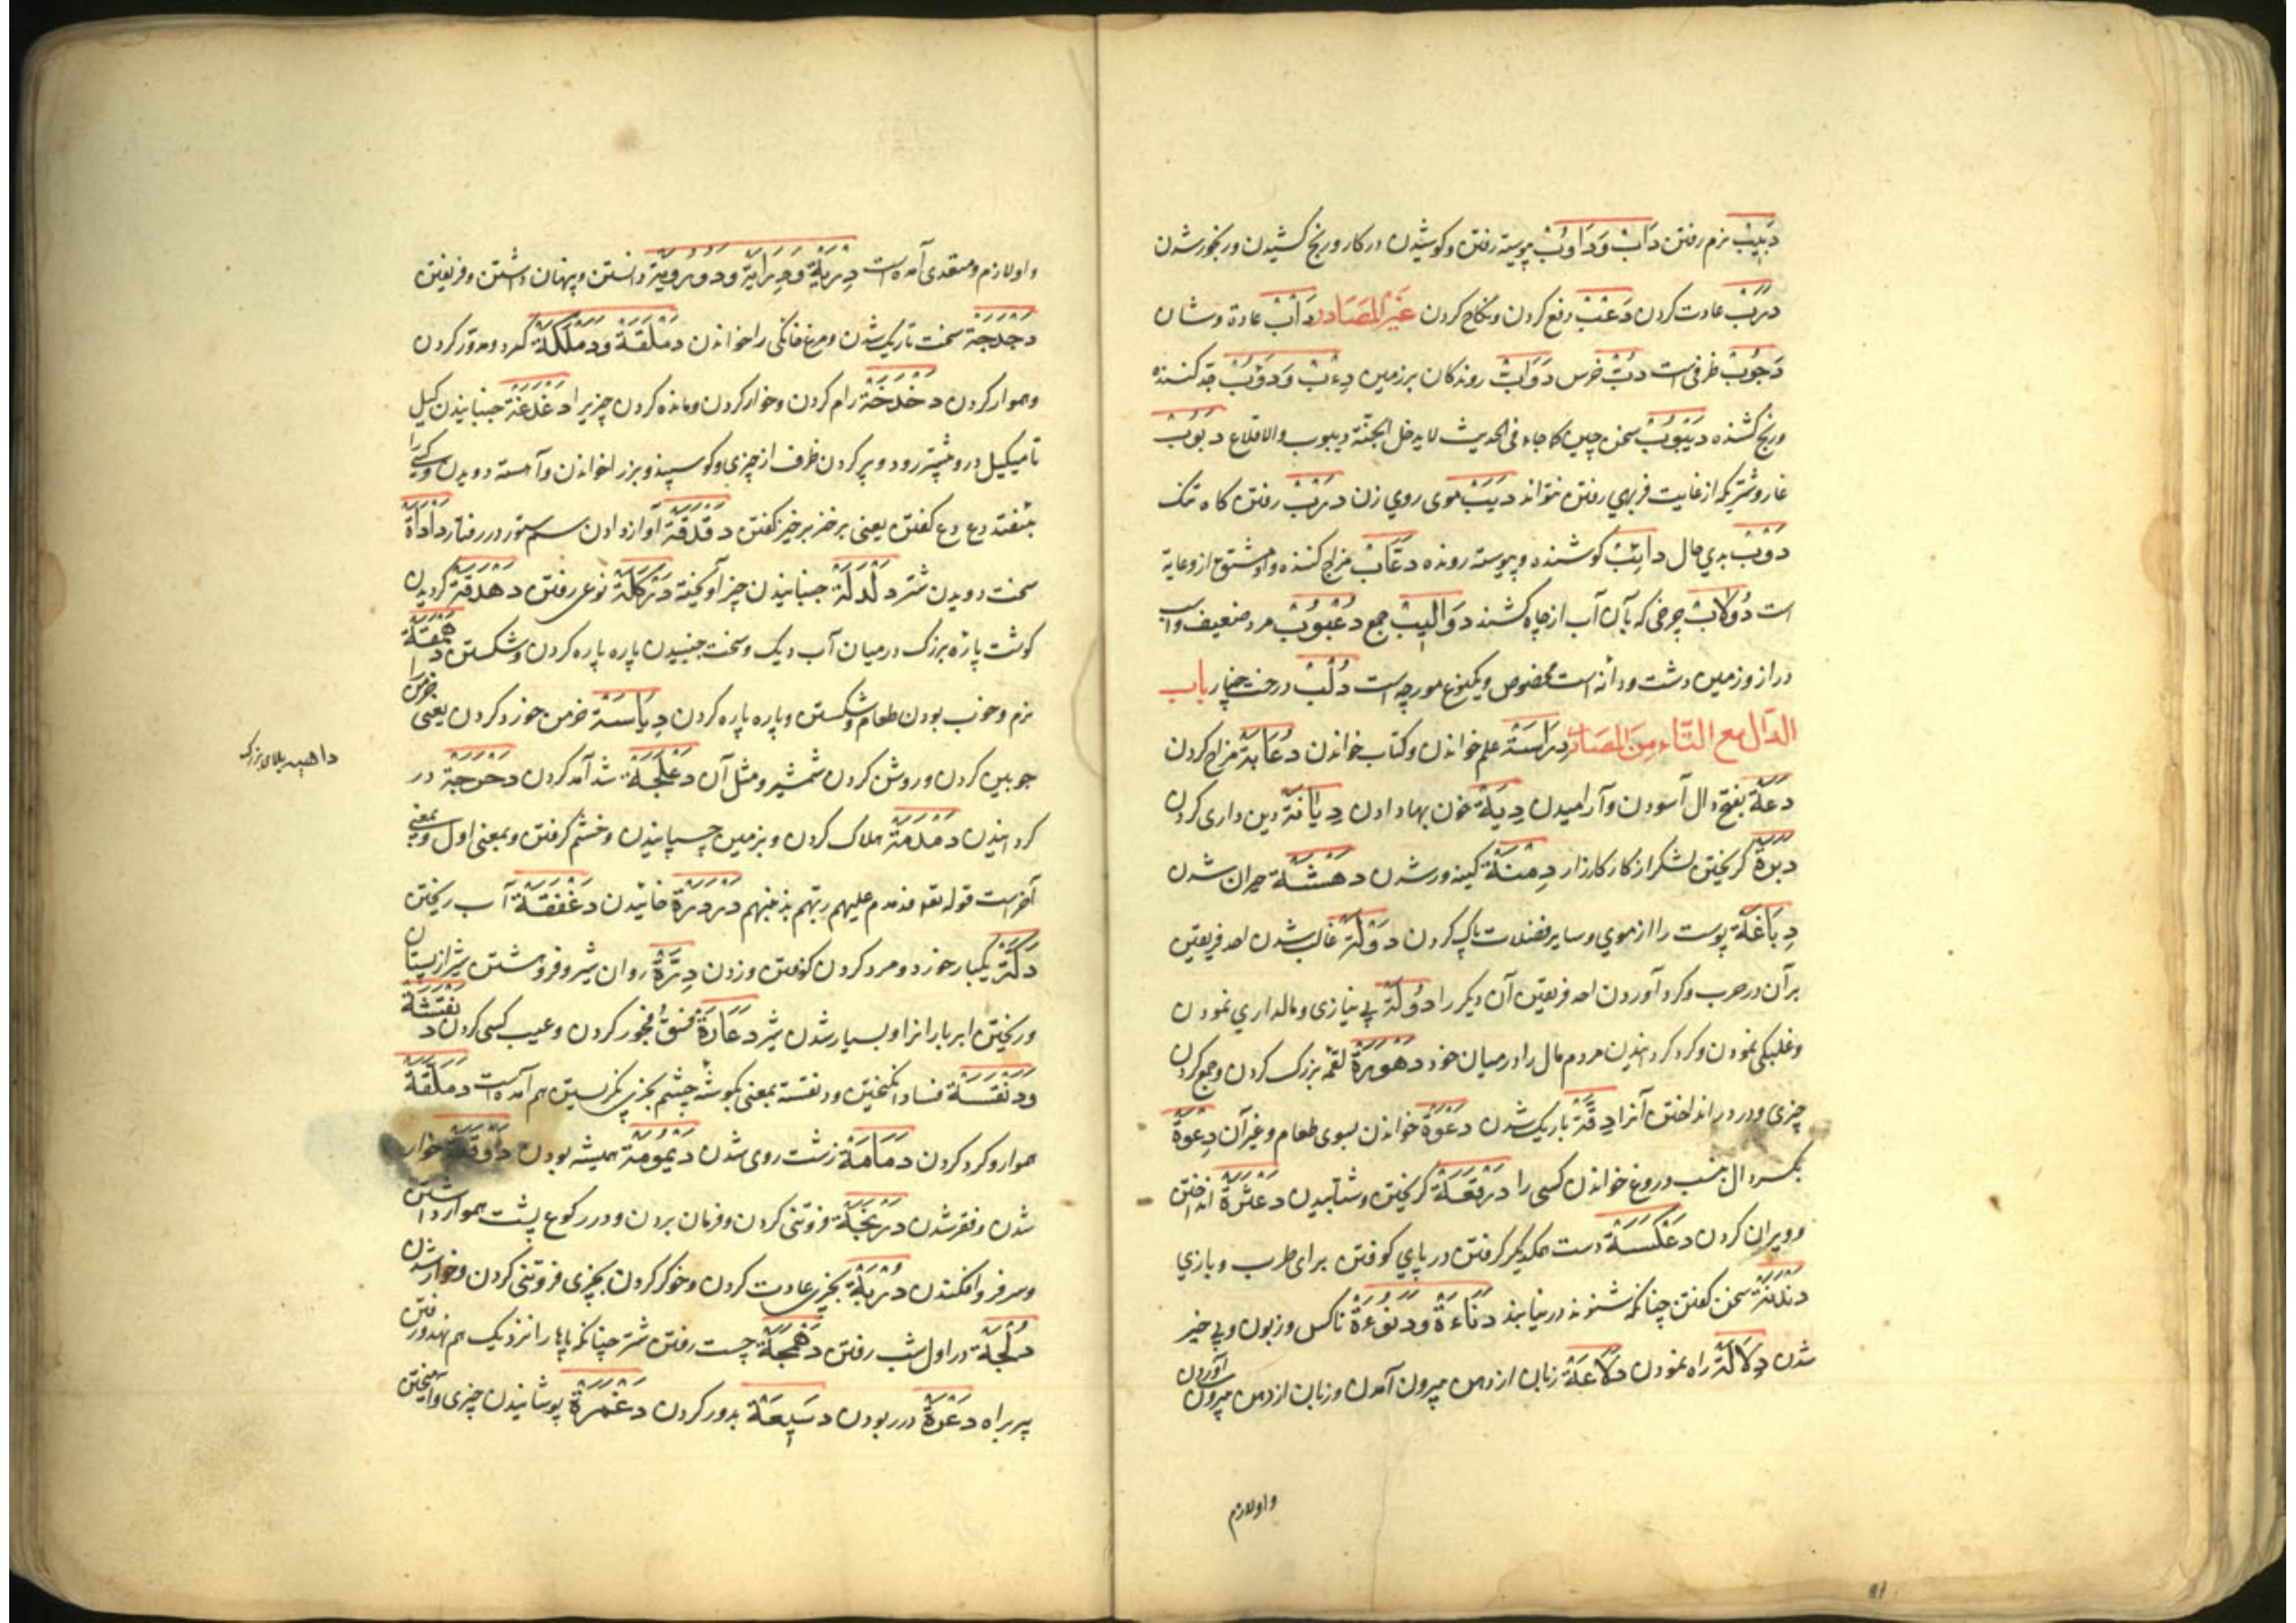 دَبِیْبْ نرم رفتن دَابْ وَدَاوُبْ پیوسته رفتن و کوشیدن در کار و رنج کشیدن و رنجور شدن
دربْ عادت کردن دَعْبْ دفع کردن و نکاح کردن غَیْرُ المَصَادر دَأبْ عادة و شان
دَجُوبْ ظرفی است دُبْ خرس دَوَابْ روندکان بر زمین دِءبْ وَدَؤبْ جد کننده
و رنج کشنده دَیْبُوبْ سخن چین کما جاء فی الحدیث لا یدخل الجنّة دیبوب ولا قلاع دَبُوبْ
غار و شتریکه از غایت فربهی رفتن نتواند دَبَبْ موی روی زن دربْ رفتن کاه تنک
دَوْبْ بدی حال دائِبْ کوشنده و پیوسته رونده دَعَّابْ مزاح کننده و مشتق از دعابة
است دُولَابْ چرخی که بآن آب از چاه کشند دَوَالِیبْ جمع دُعْبُوبْ مرد ضعیف و اسب
دراز و زمین دشت و دانه است مخصوص و یکنوع مورچه است دُلْبْ درخت چنار باب
الدّال مع التّاء مِنَ المصَادر دِرَاسَة علم خواندن و کتاب خواندن دُعَابَة مزاح کردن
دَعَة بفتح دال آسودن و آرامیدن دِیَة خون بها دادن دِیَانَة دین داری کردن
دَبَرَة کریختن لشکر از کار کارزار دِمْنَة کینه ور شدن دَهْشَة حیران شدن
دِبَاغَة پوست را از موی و سایر فضلات پاک کردن دَوْلَة غالب شدن احد فریقین
بر آن در حرب و کرد آوردن احد فریقین آن دیکر را دُولَة بی نیازی و مالداری نمودن
و غلبکی نمودن و کرد کردانیدن مردم مال را در میان خود دَهْوَرَة لقمه بزرک کردن و جمع کردن
چیزی و در دور انداختن آنرا دِقَّة باریک شدن دَعْوَة خواندن بسوی طعام و غیر آن دِعْوَة
بکسر دال بنسب دروغ خواندن کسی را دَرْقَعَة کریختن و شتابیدن دَعْثَرَة انداختن
و ویران کردن دَعْکَسَة دست همدیکر کرفتن و در پای کوفتن برای طرب و بازی
دَنْدَنَة سخن کفتن چنانکه شنونده در نیابند دَنَاءَة وَدَنُوءَة ناکس و زبون و بی خیر
شدن دِلَالَة راه نمودن دَلَاعَة زبان از دهن بیرون آمدن و زبان از دهن بیرون آوردن
و اولازم
و اولازم و متعدی آمده است دِرْیَة وَدِرَایَة و دانستن و پنهان داشتن و فریفتن
دَجْدَجَة سخت تاریک شدن و مرغ خانکی را خواندن دَمْلَقَة وَدَمْلَکَة کرد و مدور کردن
و هموار کردن دَخْدَخَة رام کردن و خوار کردن و مانده کردن چیزیرا دَغْدَغَة جنبانیدن کیل
تا میکیل درو بیشتر رود و پر کردن ظرف از چیزی و کوسپند و بز را خواندن و آهسته دویدن و کسی را
بیفتد دع دع کفتن یعنی برخیز برخیز کفتن دَقْدَقَة آواز دادن سم ستور در رفتار دَأْدَأَة
سخت دویدن شتر دَلْدَلَة جنبانیدن چیز آویخته نوعی رفتن دَهْدَقَة کردیدن
کوشت پاره بزرک در میان آب دیک و سخت جنبیدن پاره پاره کردن و شکستن دَهْمَقَة
نرم و خوب بودن طعام و شکستن و پاره پاره کردن دِیَاسَة خرمن خورد کردن یعنی خرمن را
جوبین کردن و روشن کردن شمشیر و مثل آن دَعْلَجَة شد آمد کردن دَحْرَجَة در
کردانیدن دَمْدَمَة هلاک کردن و بزمین چسپانیدن و خشم کرفتن و بمعنی اول و بمعنی
آخر است قوله تع فدمدم علیهم ربّهم بذنبهم دَرْدَرَة خائیدن دَغْفَقَة آب ریختن
دَکَّة یکبار خورد و مرد کردن کوفتن و زدن دِرَّة روان شیر و فروهشتن شیر از پستان
و ریختن ابر بارانرا و بسیار شدن شیر دَعَارَة فسق و فجور کردن و عیب کسی کردن دَنْقَشَة
وَدَنْقَسَة فساد انکیختن و دنقسة بمعنی بکوشه چشم بچیزی نکریستن هم آمده است دَمْلَقَة
هموار و کرد کردن دَمَامَة زشت روی شدن دَیْمُومَة همیشه بودن دَوْقَعَة خوار
شدن و فقر شدن دَرْبَخَة فروتنی کردن و فرمان بردن و در رکوع پشت هموار داشتن
و سر فرو افکندن دُرْبَة بچیزی عادت کردن و خوکر کردن بچیزی فروتنی کردن و خوار شدن
دُلْجَة در اول شب رفتن دَهْمَجَة چست رفتن شتر چنانکه پاها را نزدیک هم نهد و رفتن
پیر براه دَغْرَة در ربودن دَسِیعَة بدور کردن دَغْمَرَة پوشانیدن چیزی و آمیختن
داهیه بلای بزرک